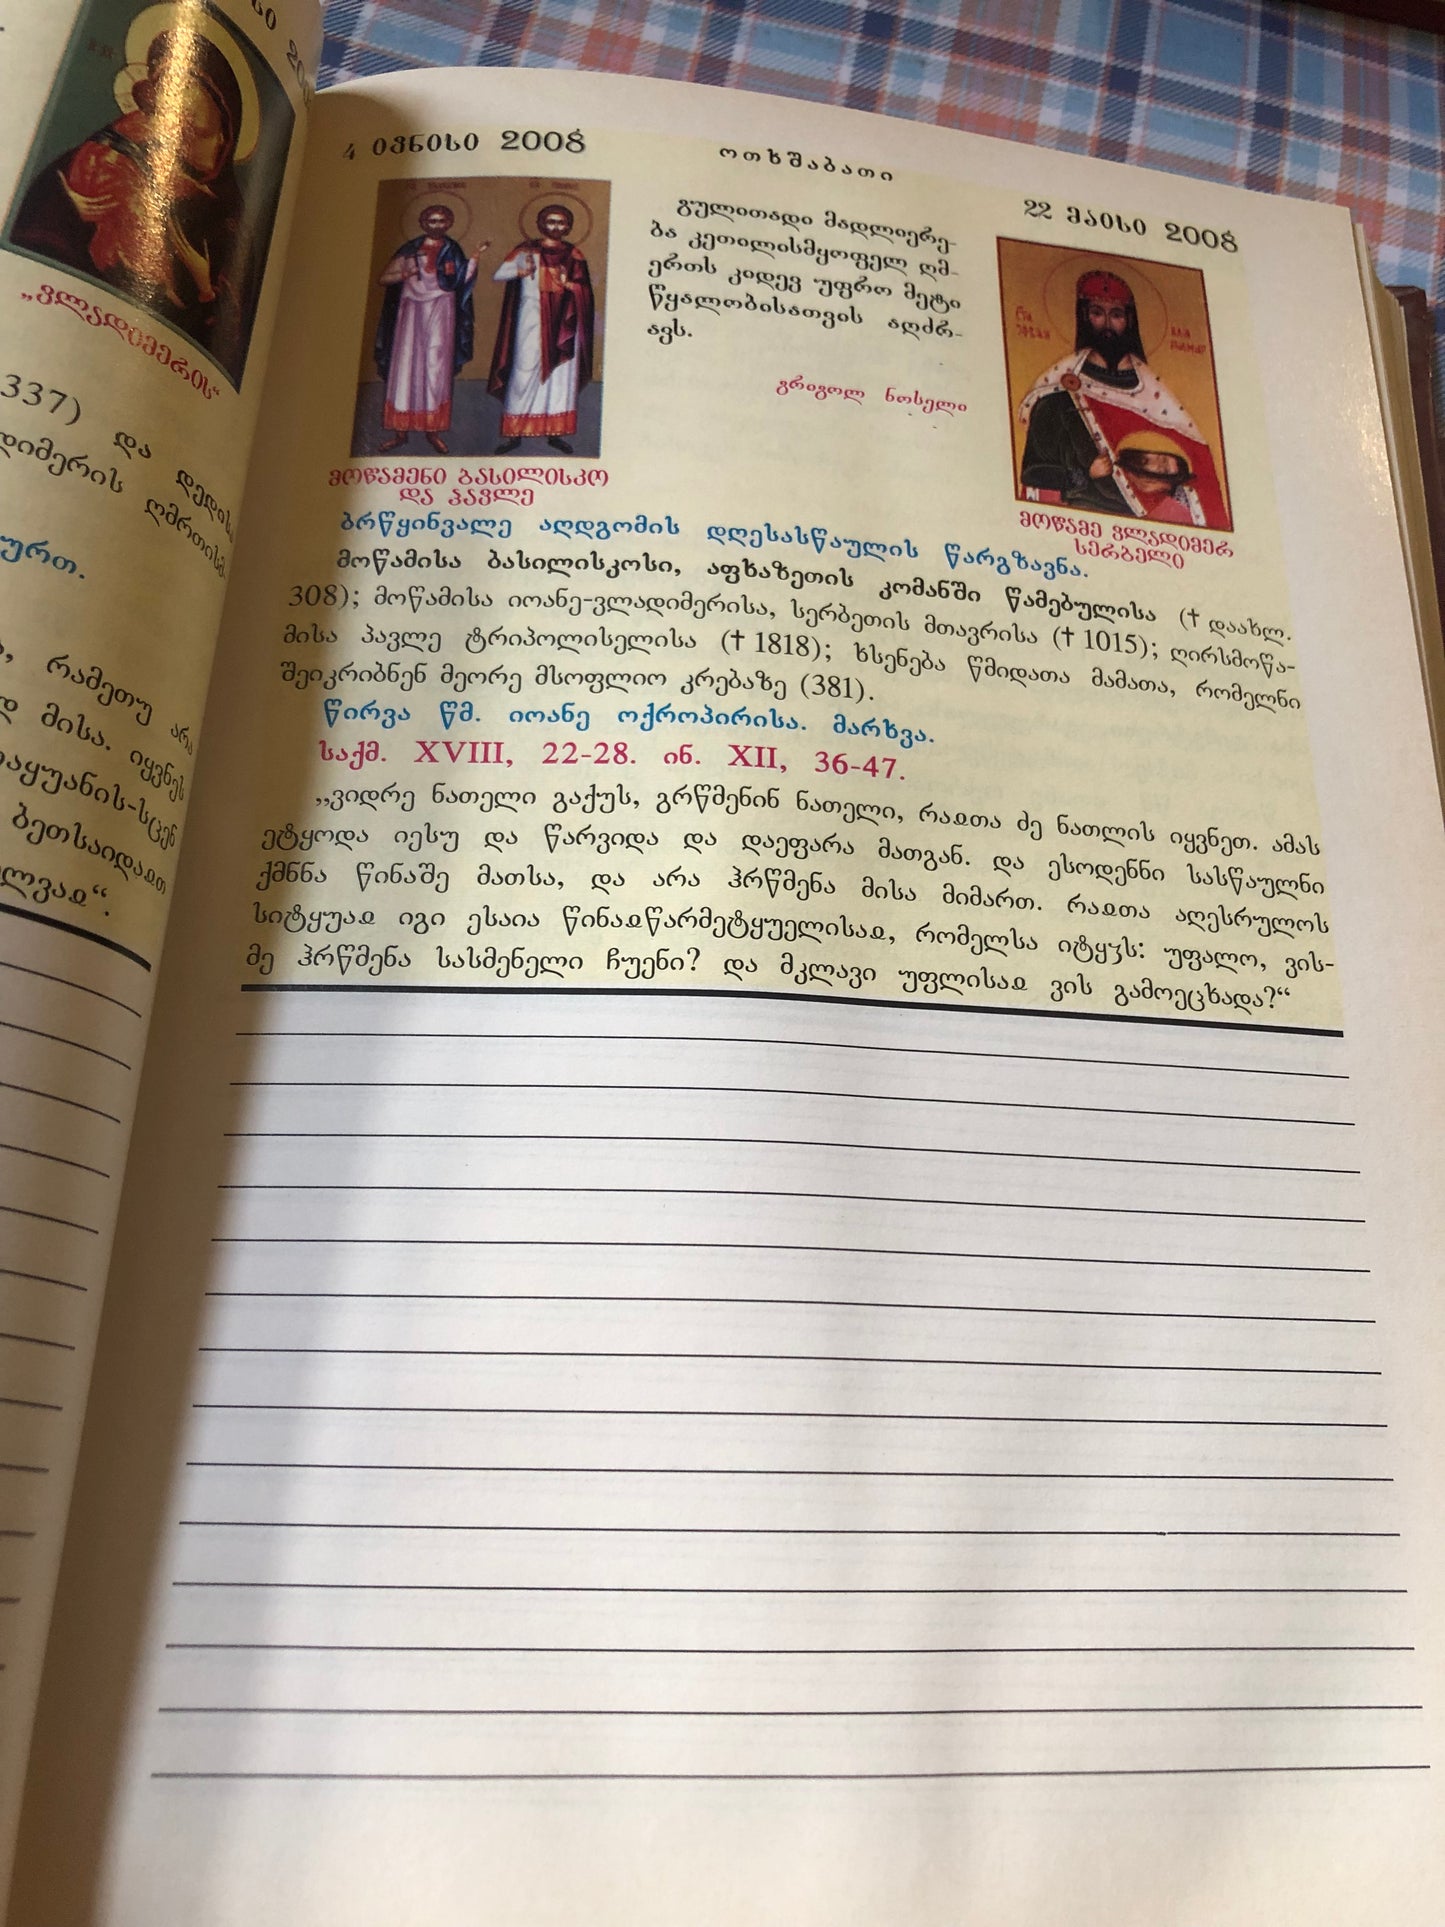 „ვლადიმერის“
337) და დედისა
ღმრთისმ
ურთ.
რამეთუ არა
მისა. იყვნეს
ბეთსაიდაჲთ
4 ივნისი 2008
ოთხშაბათი
22 მაისი 2008
გულითადი მადლიერე-
ბა კეთილისმყოფელ ღმ-
ერთს კიდევ უფრო მეტი
წყალობისათვის აღძრ-
ავს.
გრიგოლ ნოსელი
მოწამენი ბასილისკო
და პავლე
მოწამე ვლადიმერ
სერბელი
ბრწყინვალე აღდგომის დღესასწაულის წარგზავნა.
მოწამისა ბასილისკოსი, აფხაზეთის კომანში წამებულისა († დაახლ.
308); მოწამისა იოანე-ვლადიმერისა, სერბეთის მთავრისა († 1015); ღირსმოწა-
მისა პავლე ტრიპოლისელისა († 1818); ხსენება წმიდათა მამათა, რომელნი
შეიკრიბნენ მეორე მსოფლიო კრებაზე (381).
წირვა წმ. იოანე ოქროპირისა. მარხვა.
საქმ. XVIII, 22-28. ინ. XII, 36-47.
„ვიდრე ნათელი გაქუს, გრწმენინ ნათელი, რაჲთა ძე ნათლის იყვნეთ. ამას
ეტყოდა იესუ და წარვიდა და დაეფარა მათგან. და ესოდენნი სასწაულნი
ქმნნა წინაშე მათსა, და არა ჰრწმენა მისა მიმართ. რაჲთა აღესრულოს
სიტყუაჲ იგი ესაია წინაჲწარმეტყუელისაჲ, რომელსა იტყჳს: უფალო, ვის-
მე ჰრწმენა სასმენელი ჩუენი? და მკლავი უფლისაჲ ვის გამოეცხადა?“